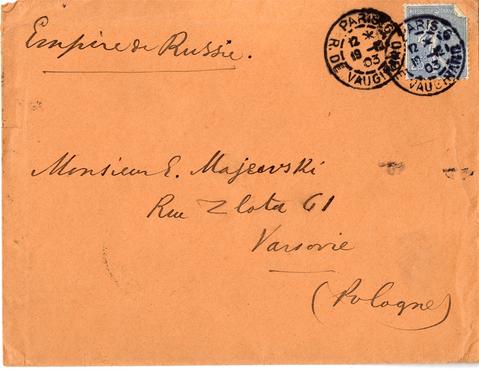 Empire de Russie.
PARIS 6
12 *
19 -12
03
R. DE VAUGIRARD
PARIS 6
12 *
19 -12
03
R. DE VAUGIRARD
Monsieur E. Majewski
Rue Zlota 61
Varsovie
(Pologne)